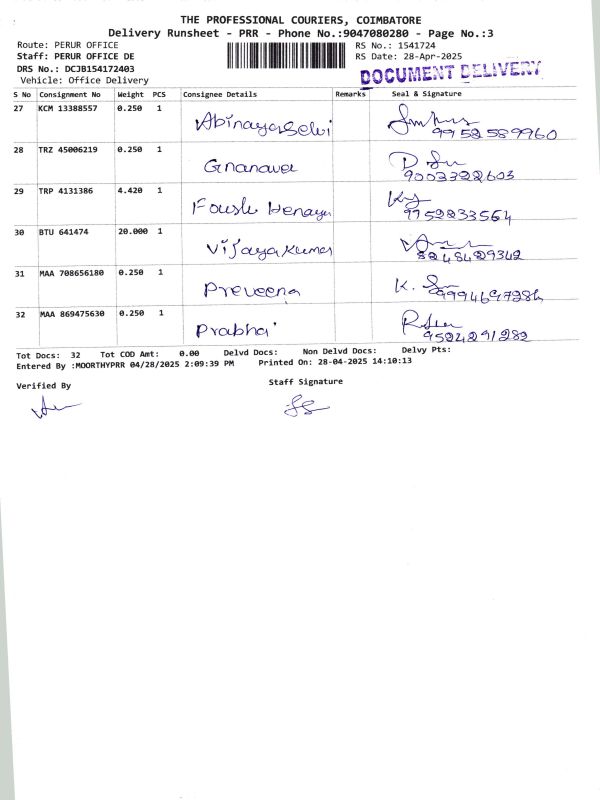 THE PROFESSIONAL COURIERS, COIMBATORE
Delivery Runsheet - PRR - Phone No.:9047080280 - Page No.:3
Route: PERUR OFFICE RS No.: 1541724
Staff: PERUR OFFICE DE RS Date: 28-Apr-2025
DRS No.: DCJB154172403 DOCUMENT DELIVERY
Vehicle: Office Delivery
S No Consignment No Weight PCS Consignee Details Remarks Seal & Signature
27 KCM 13388557 0.250 1 Abinayaselvi
9952589960
28 TRZ 45006219 0.250 1 Gnanavel
9003322603
29 TRP 4131386 4.420 1
9752233564
30 BTU 641474 20.000 1 Vijayakumar
31 MAA 708656180 0.250 1 Preveena
32 MAA 869475630 0.250 1 Prabhai
9524291282
Tot Docs: 32 Tot COD Amt: 0.00 Delvd Docs: Non Delvd Docs: Delvy Pts:
Entered By :MOORTHYPRR 04/28/2025 2:09:39 PM Printed On: 28-04-2025 14:10:13
Verified By Staff Signature